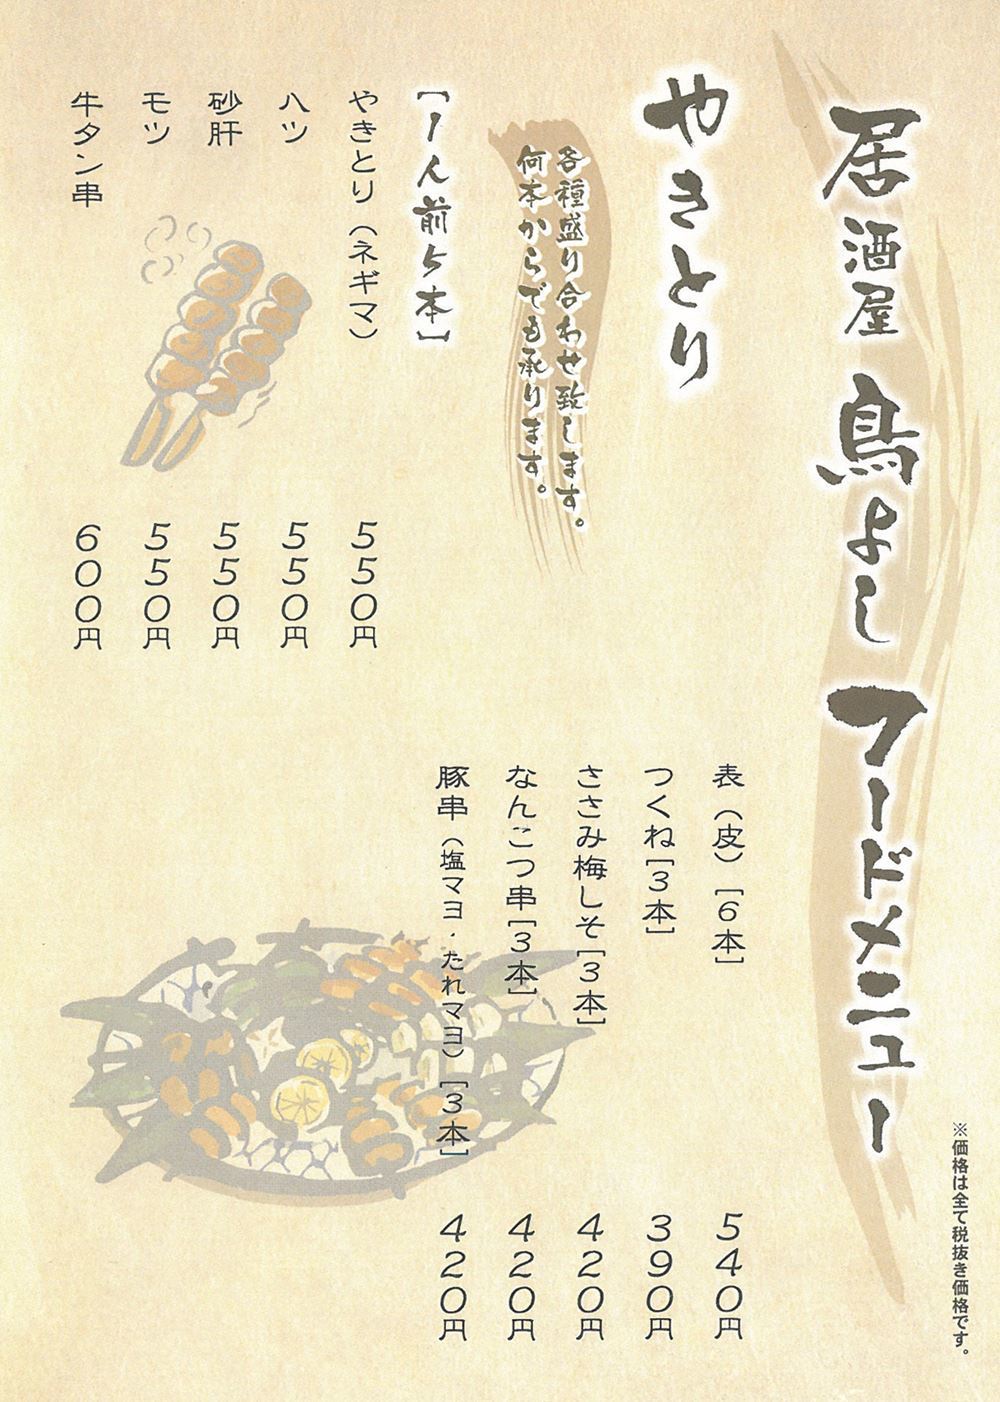 ※価格は全て税抜き価格です。
居酒屋 鳥よし フードメニュー
やきとり
各種盛り合わせ致します。
何本からでも承ります。
【1人前5本】
やきとり(ネギマ) 550円
ハツ 550円
砂肝 550円
モツ 550円
牛タン串 600円
表(皮)[6本] 540円
つくね[3本] 390円
ささみ梅しそ[3本] 420円
なんこつ串[3本] 420円
豚串(塩マヨ・たれマヨ)[3本] 420円